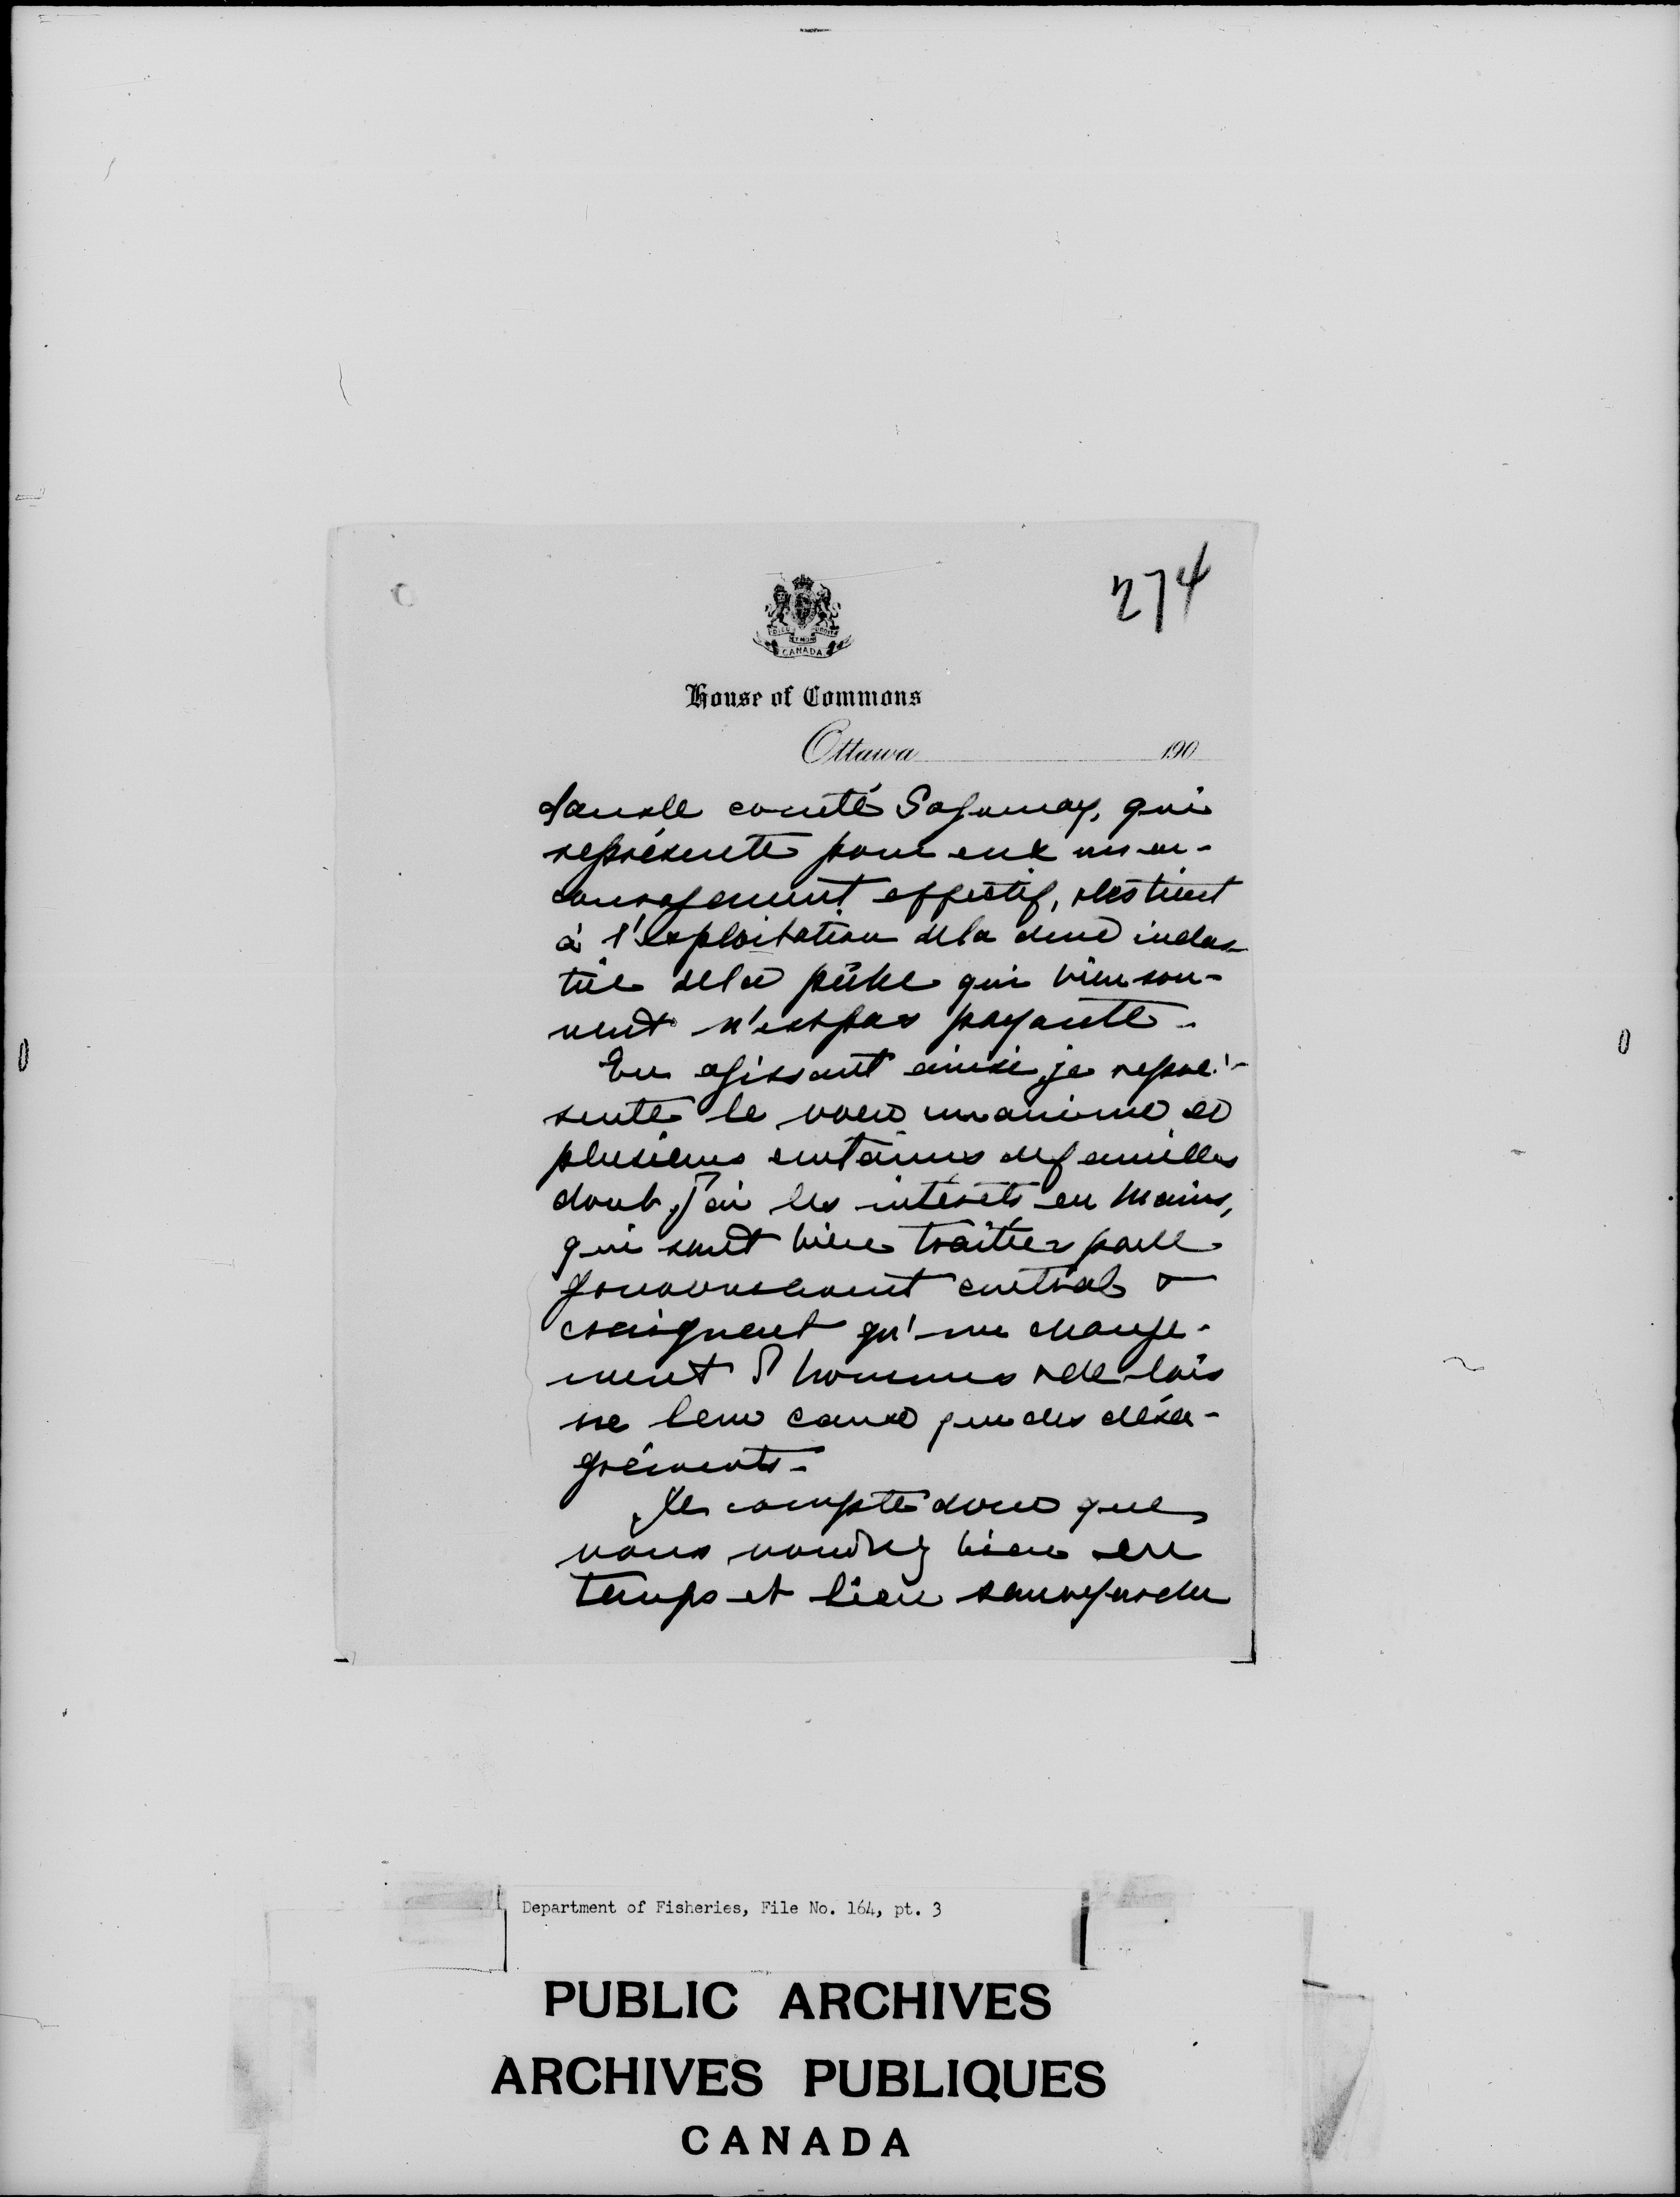 274
DIEU ET MON DROIT
CANADA
House of Commons
Ottawa 190
dans le comté Saguenay, qui
représente pour eux un en-
couragement effectif, destiné
à l'exploitation de la dure indus
trie de la pêche qui bien sou-
vent n'est pas payante.
En agissant ainsi, je repré-
sente le voeu unanime de
plusieurs centaines de familles
dont j'ai les intérêts en mains,
qui sont bien traitées par le
gouvernement central &
craignent qu'un change-
ment d'hommes & de lois
ne leur cause que des désa-
gréments.
Je compte donc que
vous voudrez bien en
temps et lieu sauvegarder
Department of Fisheries, File No. 164, pt. 3
PUBLIC ARCHIVES
ARCHIVES PUBLIQUES
CANADA